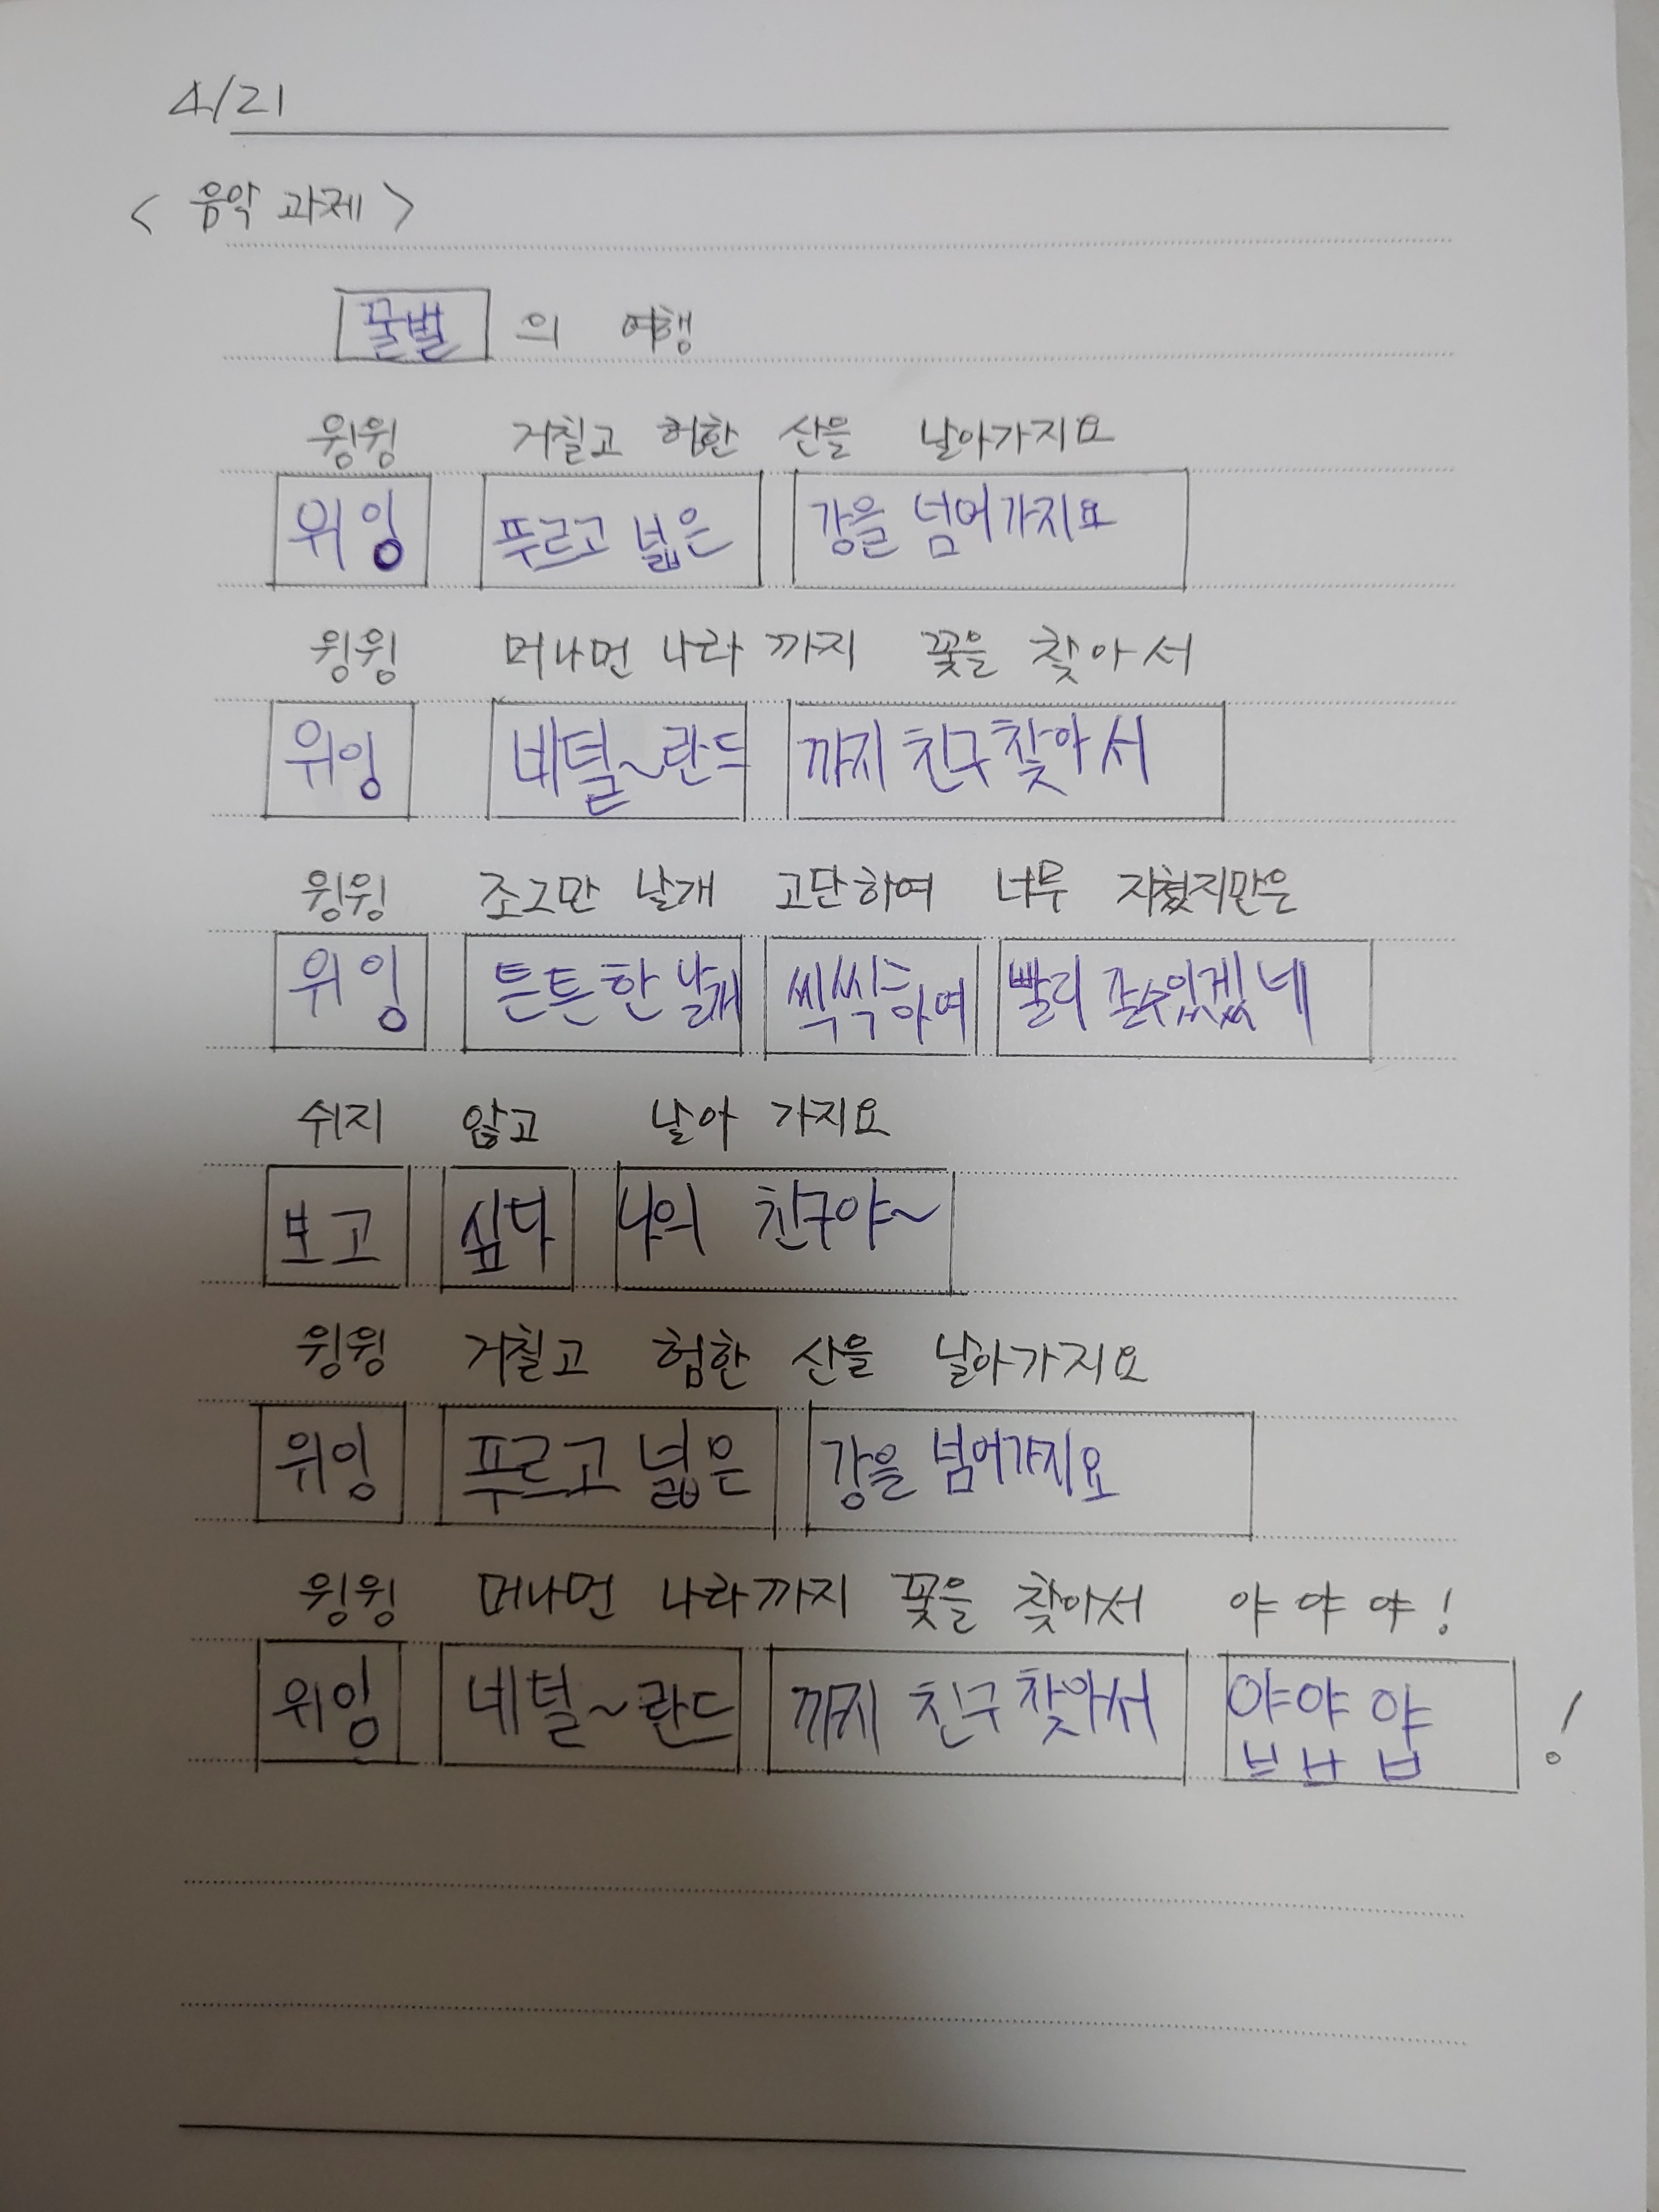 4/21
< 음악 과제 >
꿀벌 의 여행
윙윙 거칠고 험한 산을 날아가지요
위잉 푸르고 넓은 강을 넘어가지요
윙윙 머나먼 나라 까지 꽃을 찾아서
위잉 네덜~란드 까지 친구 찾아서
윙윙 조그만 날개 고단하여 너무 지쳤지만은
위잉 튼튼한 날개 씩씩하여 빨리 갈수있겠네
쉬지 않고 날아 가지요
보고 싶다 나의 친구야~
윙윙 거칠고 험한 산을 날아가지요
위잉 푸르고 넓은 강을 넘어가지요
윙윙 머나먼 나라까지 꽃을 찾아서 야 야 야 !
위잉 네덜~란드 까지 친구 찾아서 얍얍 얍 !